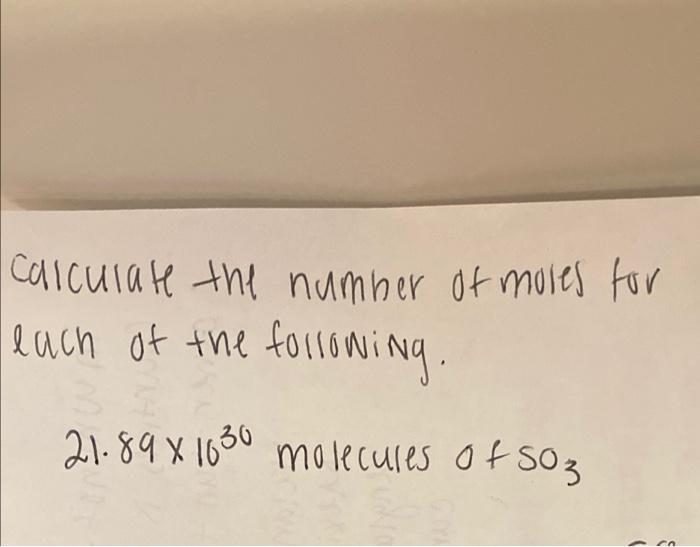 calculate the number of moles for
each of the following.
21.89 x 10³⁰ molecules of SO₃